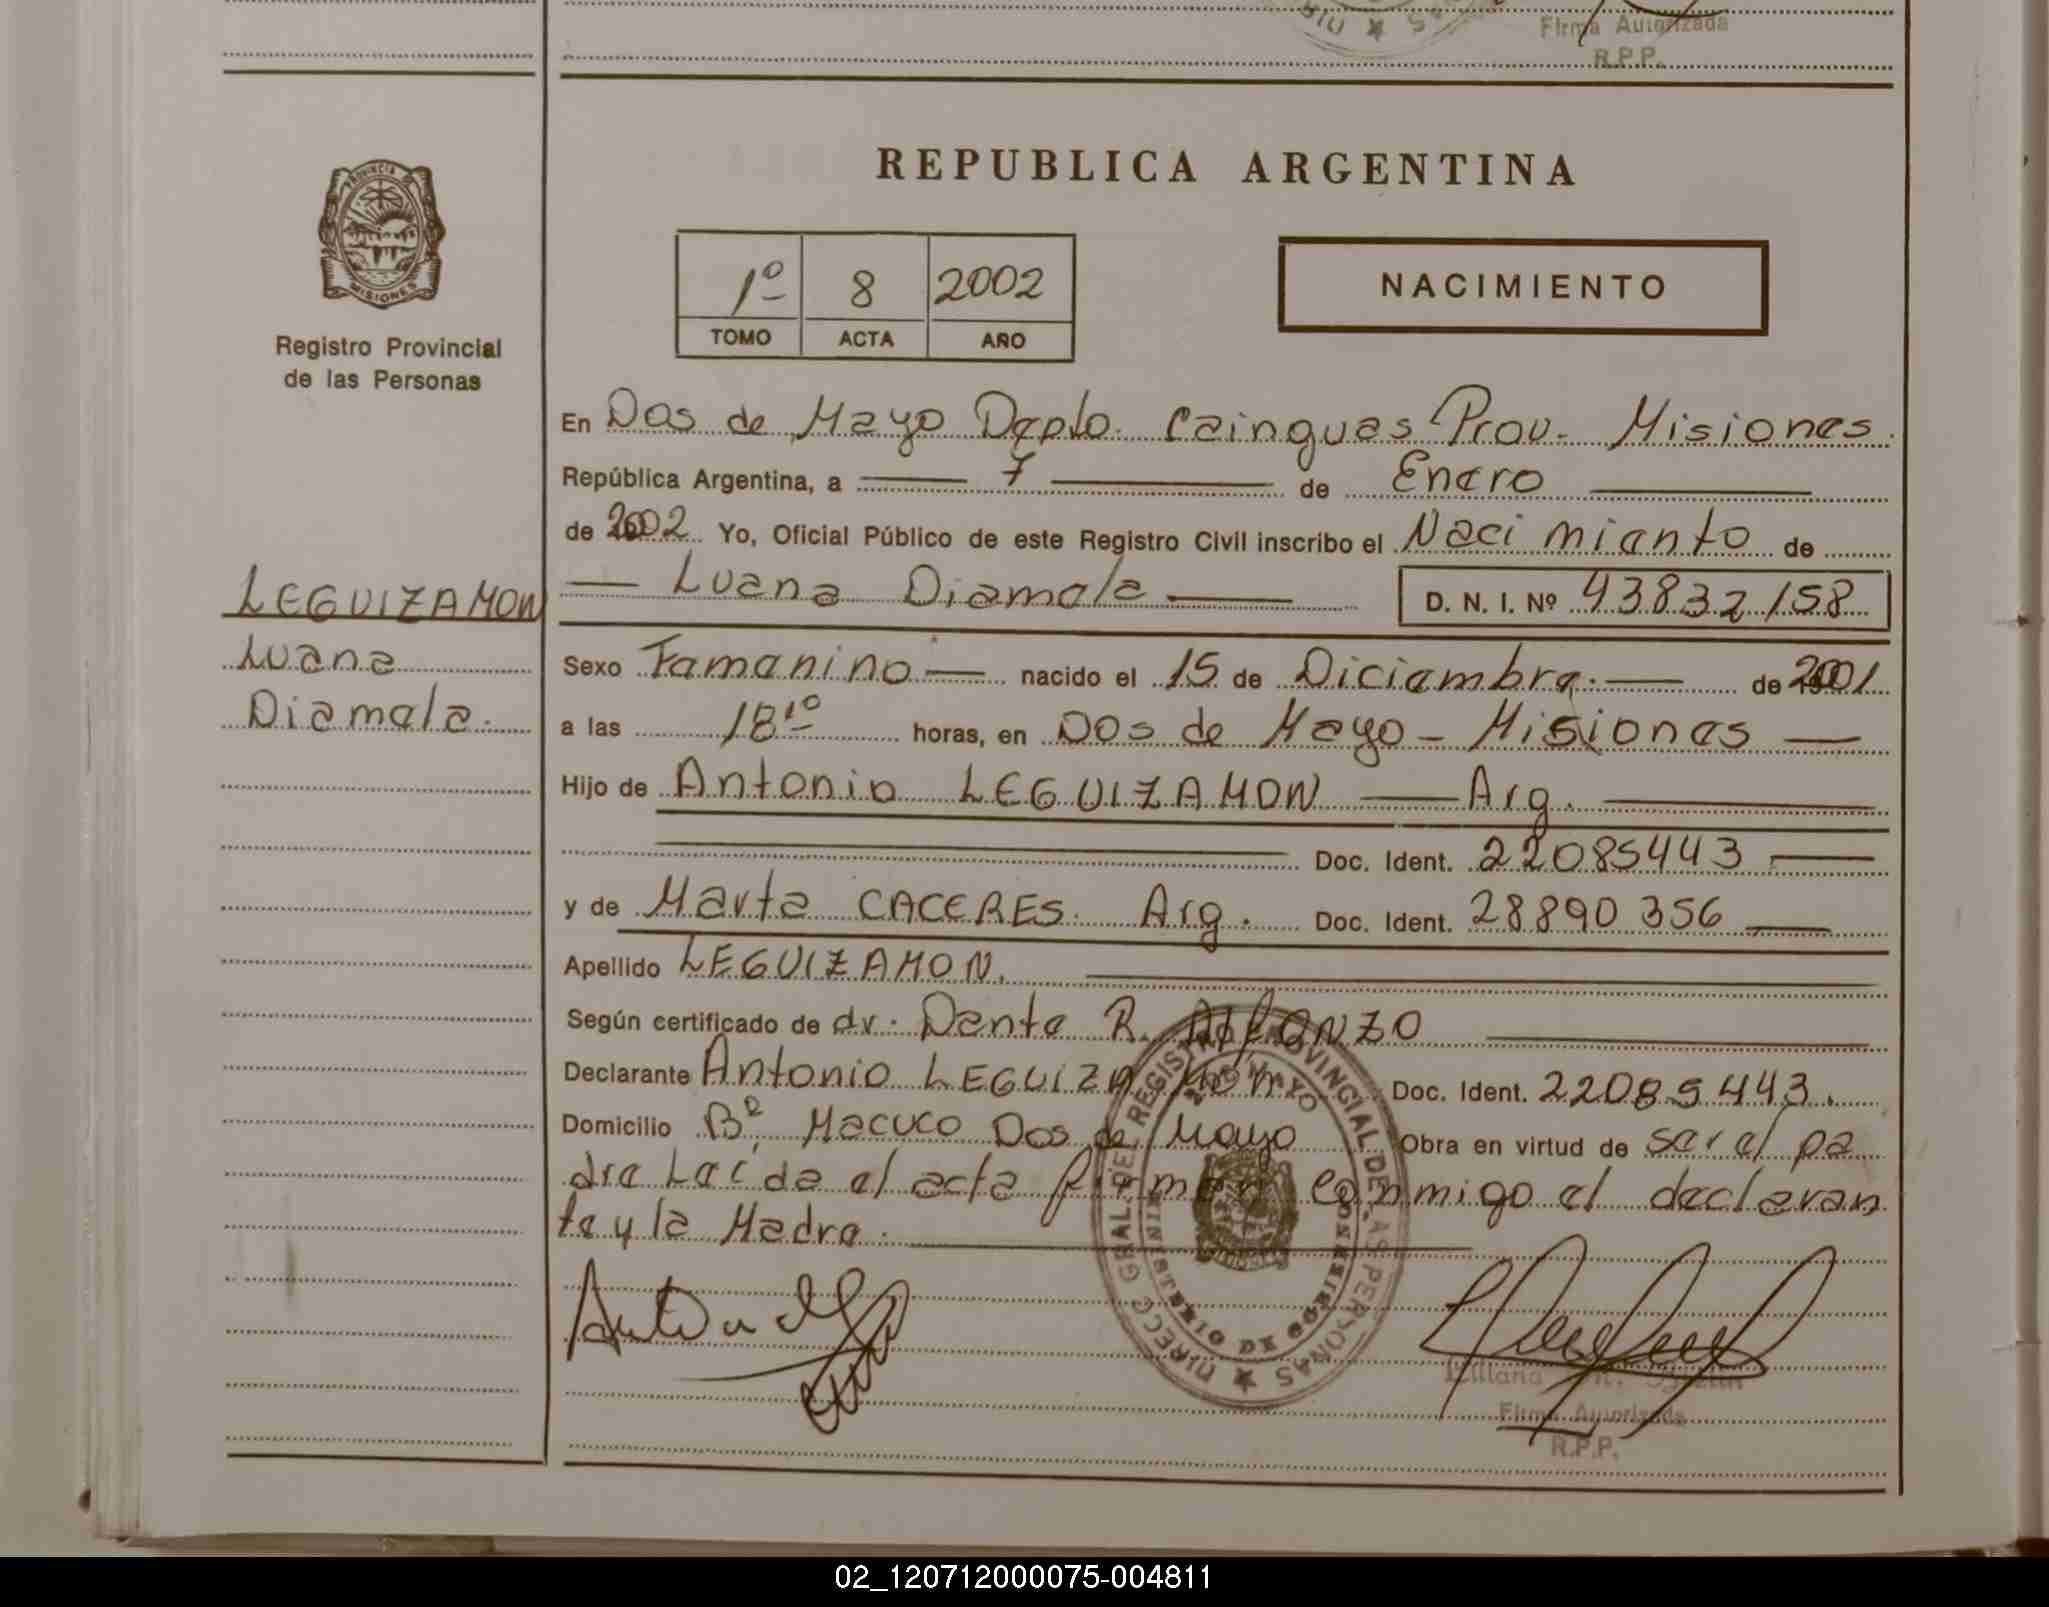 Firma Autorizada
R.P.P.
REPUBLICA ARGENTINA
PROVINCIA DE
MISIONES
1º 8 2002
TOMO ACTA AÑO
NACIMIENTO
Registro Provincial
de las Personas
En Dos de Mayo Depto. Cainguas Prov. Misiones.
República Argentina, a 7 de Enero
de 2002 Yo, Oficial Público de este Registro Civil inscribo el Nacimiento de
Luana Diamela D. N. I. Nº 43832158
LEGUIZAMON
Luana
Diamela.
Sexo Femenino nacido el 15 de Diciembre. de 2001
a las 18¹⁰ horas, en Dos de Mayo - Misiones
Hijo de Antonio LEGUIZAMON Arg.
Doc. Ident. 22085443
y de Marta CACERES. Arg. Doc. Ident. 28890356
Apellido LEGUIZAMON.
Según certificado de dr. Dante R. Alfonzo
Declarante Antonio LEGUIZAMON Doc. Ident. 22085443.
Domicilio Bº Macuco Dos de Mayo Obra en virtud de ser el pa
dre Leída el acta firman conmigo el declaran
te y la Madre.
DIREC. GRAL. DEL REGISTRO PROVINCIAL DE LAS PERSONAS
MINISTERIO DE GOBIERNO
2 DE MAYO
Firma Autorizada
R.P.P.
02_120712000075-004811